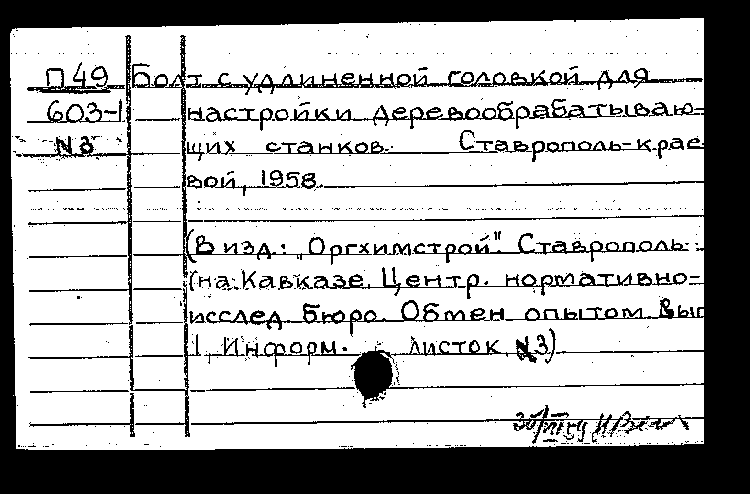 П49 Болт с удлиненной головкой для
603-1 настройки деревообрабатываю-
N3 щих станков. Ставрополь-крае-
вой, 1958.
(В изд.: "Оргхимстрой". Ставрополь
(на Кавказе. Центр. нормативно-
исслед. бюро. Обмен опытом. Вып
1, Информ. листок N3)